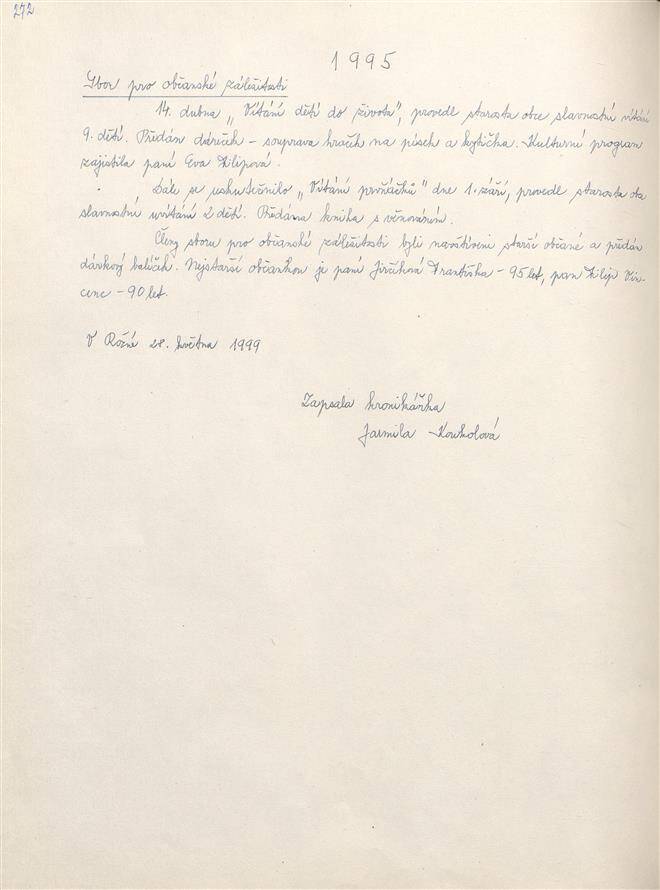 272
1995
Sbor pro občanské záležitosti
14. dubna „Vítání dětí do života", provedl starosta obce slavnostní vítání
9. dětí. Předán dáreček - souprava hraček na písek a kytička. Kulturní program
zajistila paní Eva Filipová.
Dále se uskutečnilo „Vítání prvňáčků" dne 1. září, provedl starosta obce
slavnostní uvítání 2 dětí. Předána kniha s věnováním.
Členy sboru pro občanské záležitosti byli navštíveni starší občané a předán
dárkový balíček. Nejstarší občankou je paní Jirčíková Františka - 95 let, pan Filip Vin-
cenc - 90 let.
V Rožné 28. května 1999
Zapsala kronikářka
Jarmila Koukolová